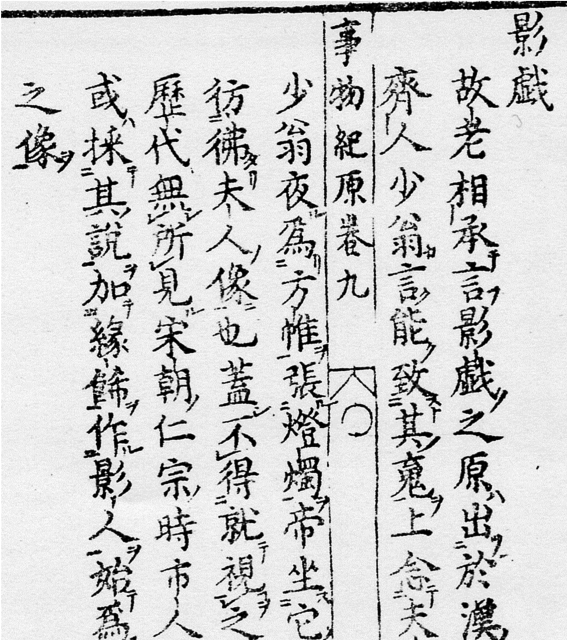 影戯
故老相承言影戯之原出於漢
齊人少翁言能致其䰟上念夫
事物紀原卷九 六〇
少翁夜爲方帷張燈燭帝坐它
彷彿夫人像也蓋不得就視之
歷代無所見宋朝仁宗時市人
或採其說加緣餙作影人始爲
之像